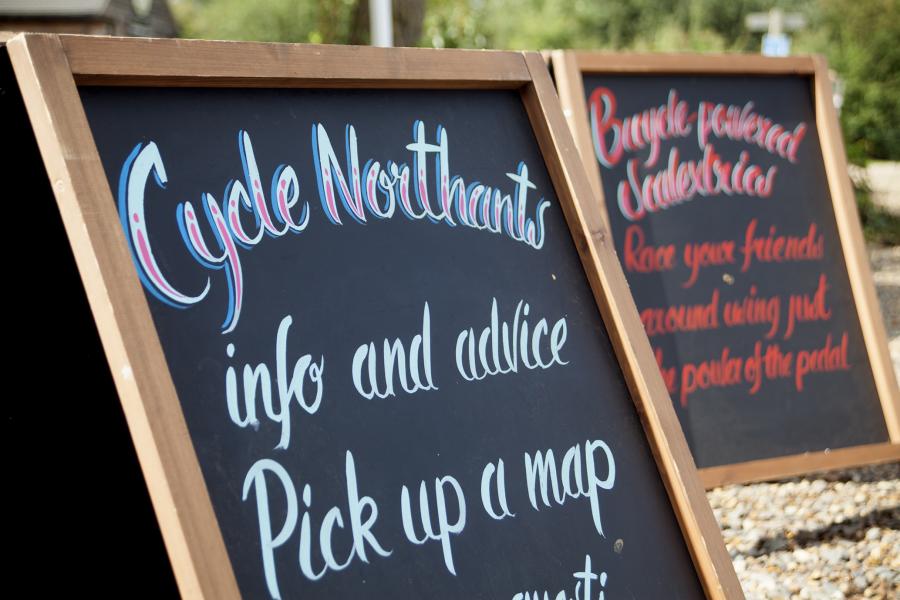 Cycle Northants
info and advice
Pick up a map
Bicycle-powered
Scalextrics
Race your friends
around using just
the power of the pedal